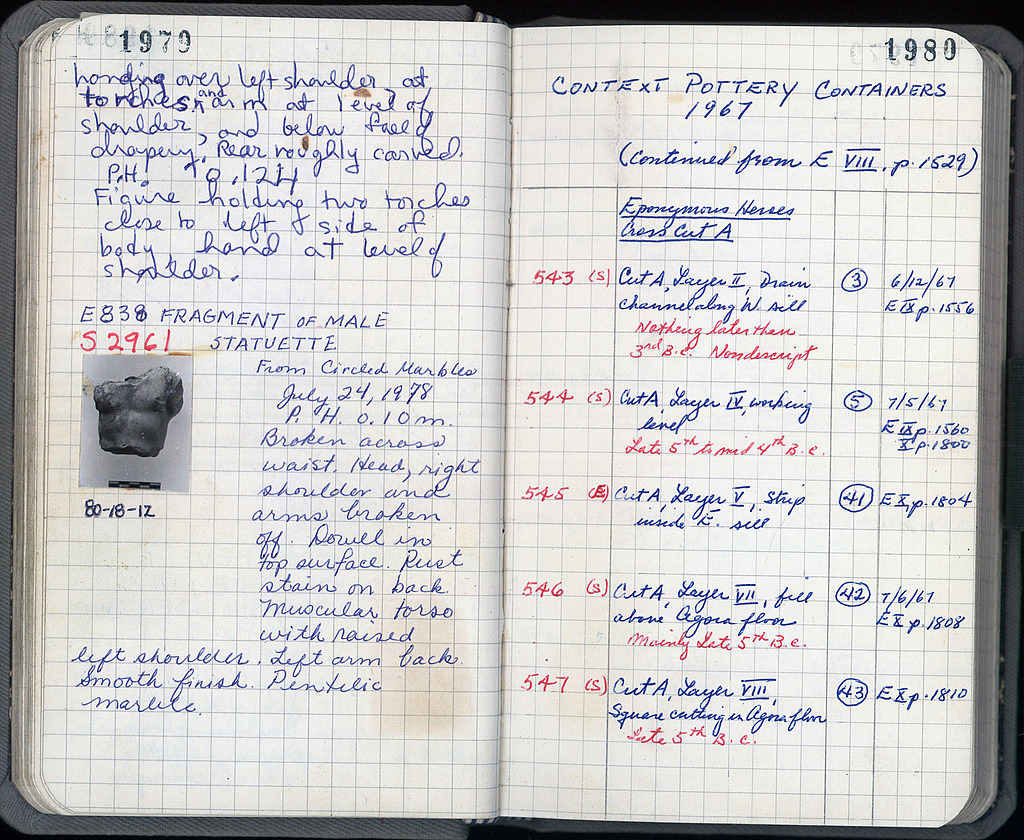 1979
handing over left shoulder, at
torches, and arm at level of
shoulder, and below fold of
drapery. Rear roughly carved.
P.H. 0.124
Figure holding two torches
close to left side of
body hand at level of
shoulder.
E838 FRAGMENT OF MALE
S 2961 STATUETTE
From Circled Marbles
July 24, 1978
P. H. 0.10 m.
Broken across
waist. Head, right
shoulder and
arms broken
off. Dowell in
top surface. Rust
stain on back.
Muscular torso
with raised
left shoulder. Left arm back.
Smooth finish. Pentelic
marble.
80-18-12
1980
CONTEXT POTTERY CONTAINERS
1967
(Continued from E VIII, p. 1529)
Eponymous Heroes
Cross Cut A
543 (S) Cut A, Layer II, Drain 3 6/12/67
channel along W. sill E IX p. 1556
Nothing later than
3rd B.C. Nondescript
544 (S) Cut A, Layer IV, working 5 7/5/67
level E IX p. 1560
X p. 1800
Late 5th to mid 4th B.C.
545 (E) Cut A, Layer V, strip 41 E X, p. 1804
inside E. sill
546 (S) Cut A, Layer VII, fill 42 7/6/67
above Agora floor E X p. 1808
Mainly Late 5th B.C.
547 (S) Cut A, Layer VIII, 43 E X p. 1810
Square cutting in Agora floor
Late 5th B.C.